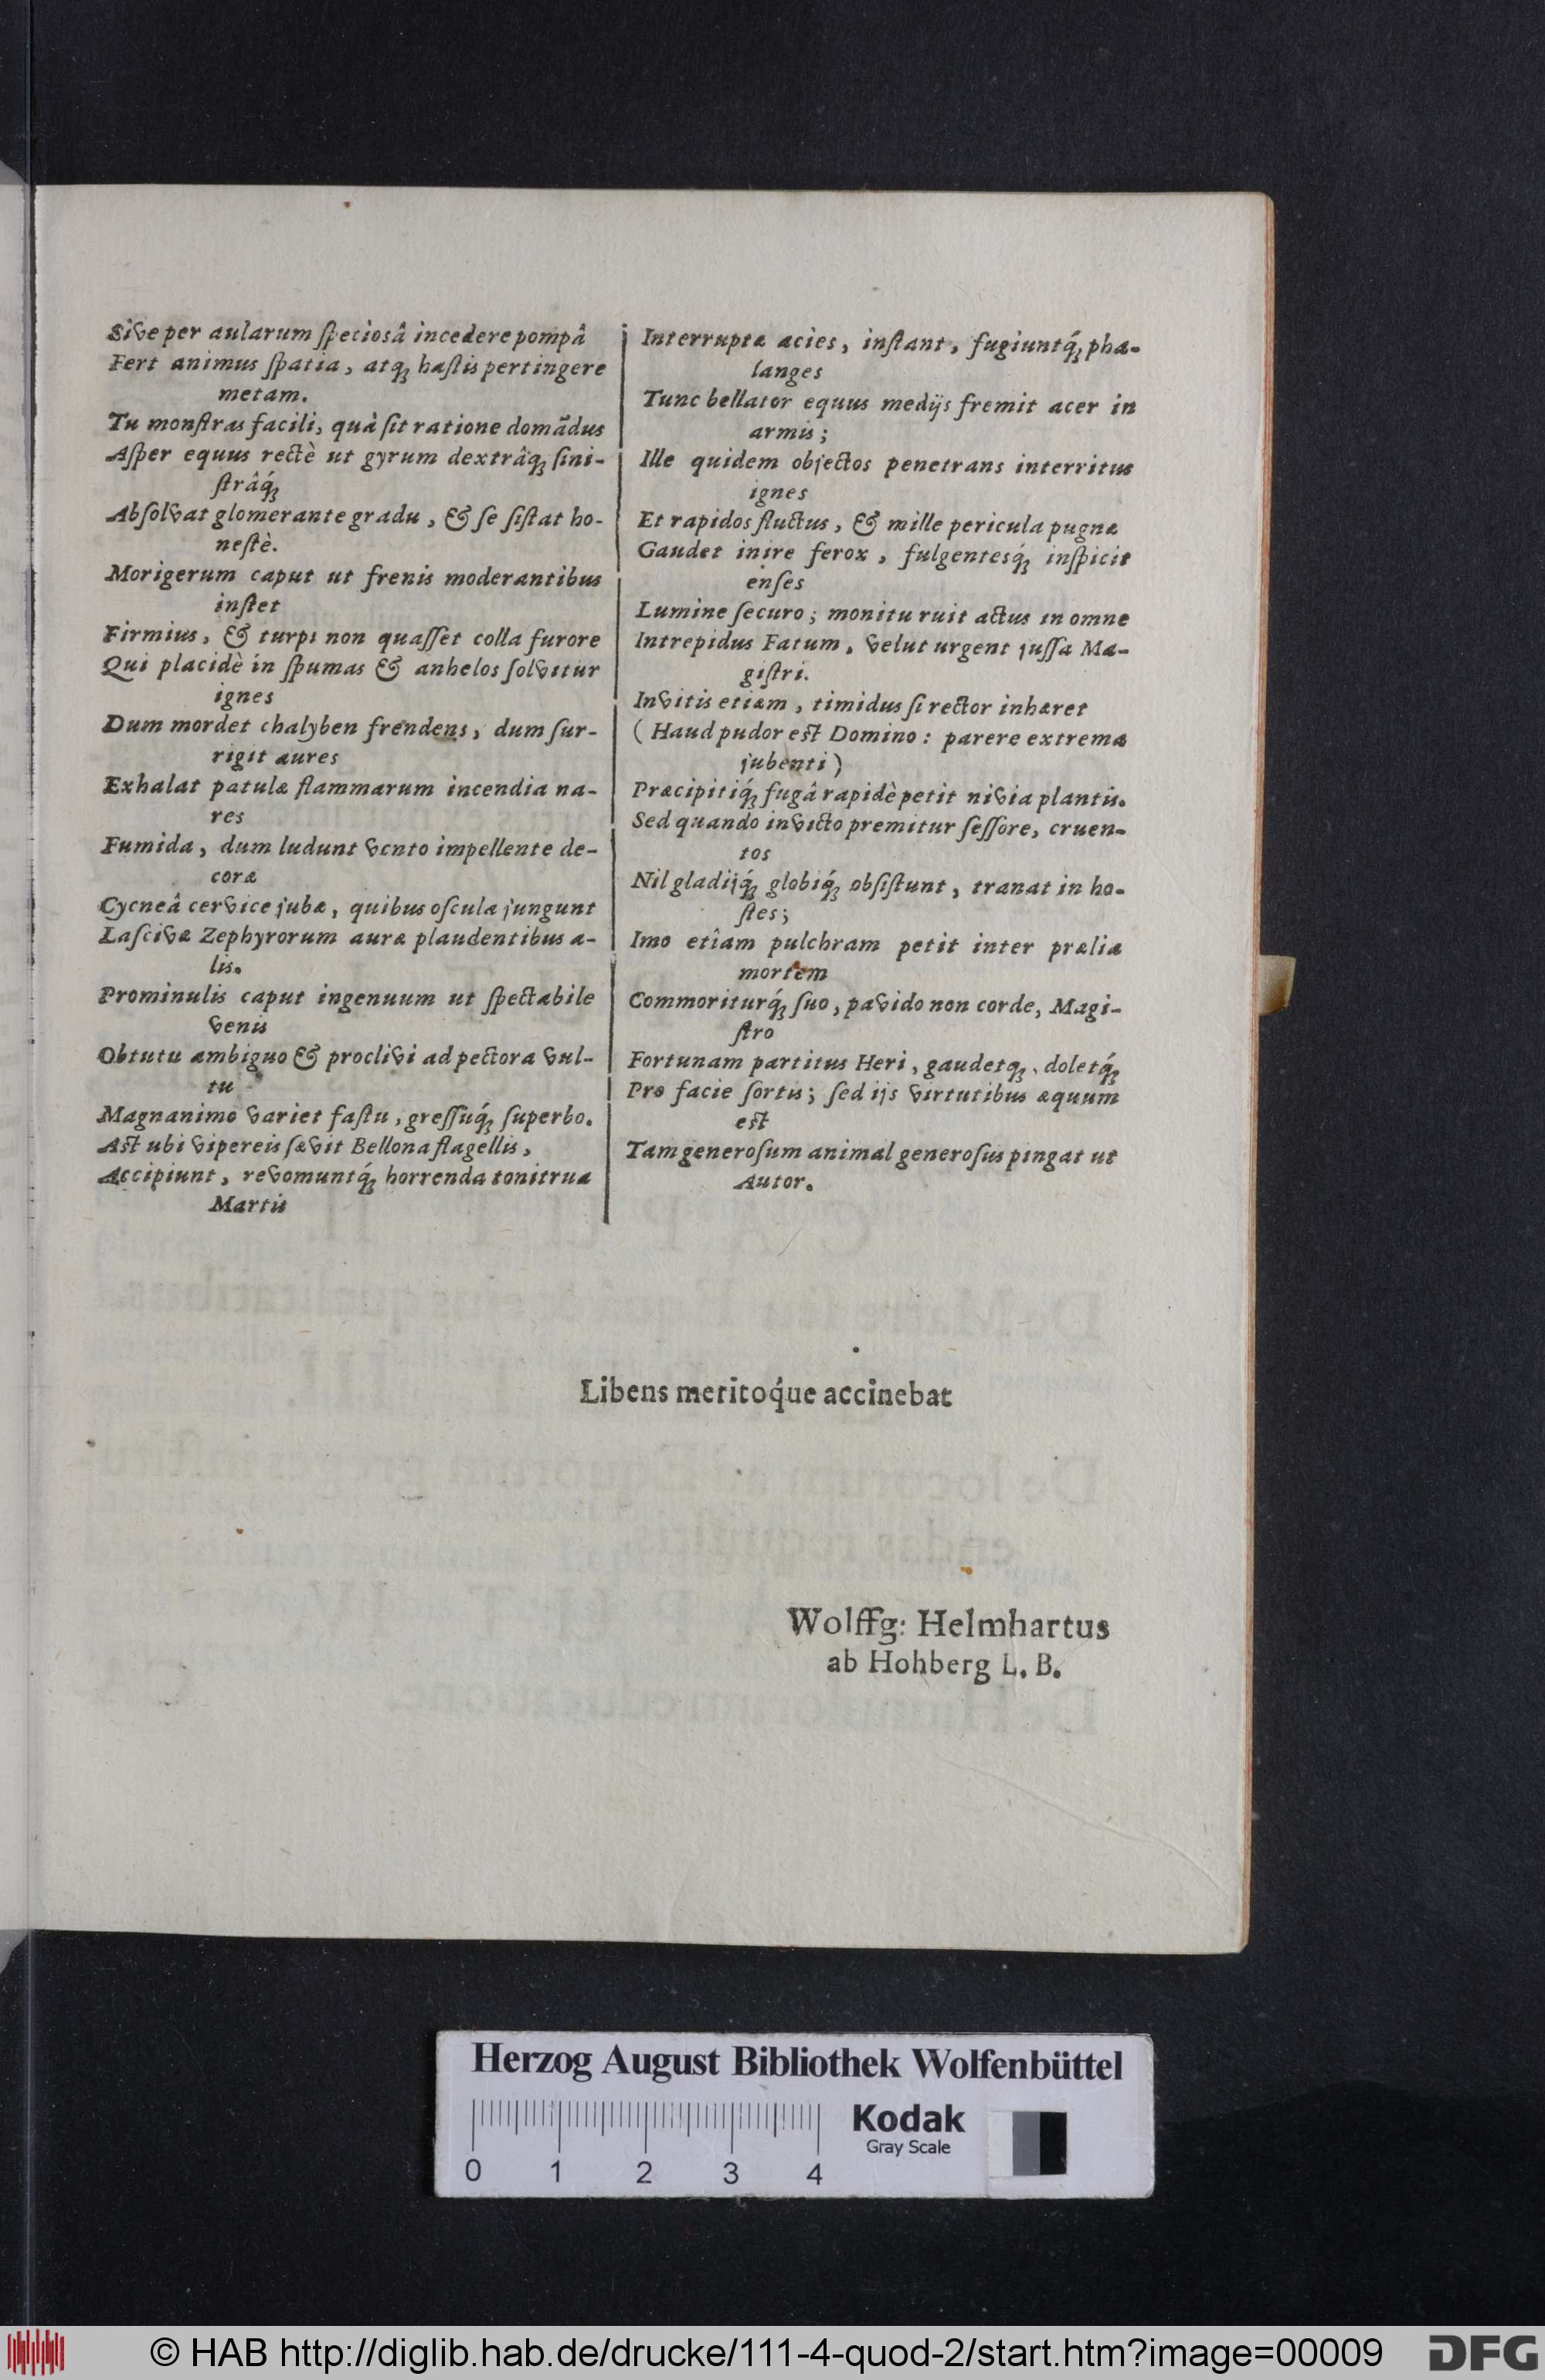 Sive per aularum ſpeciosâ incedere pompâ
Fert animus ſpatia, atq; haſtis pertingere
metam.
Tu monſtras facili, quâ ſit ratione domãdus
Aſper equus rectè ut gyrum dextrâq; ſini-
ſtrâq́;
Abſolvat glomerante gradu, & ſe ſiſtat ho-
neſtè.
Morigerum caput ut frenis moderantibus
inſtet
Firmius, & turpi non quaſſet colla furore
Qui placidè in ſpumas & anhelos ſolvitur
ignes
Dum mordet chalyben frendens, dum ſur-
rigit aures
Exhalat patulæ flammarum incendia na-
res
Fumida, dum ludunt vento impellente de-
coræ
Cycneâ cervice jubæ, quibus oſcula jungunt
Laſcivæ Zephyrorum auræ plaudentibus a-
lis.
Prominulis caput ingenuum ut ſpectabile
venis
Obtutu ambiguo & proclivi ad pectora vul-
tu
Magnanimo variet faſtu, greſſuq́; ſuperbo.
Aſt ubi vipereis ſævit Bellona flagellis,
Accipiunt, revomuntq́; horrenda tonitrua
Martis
Interruptæ acies, inſtant, fugiuntq́; pha-
langes
Tunc bellator equus medijs fremit acer in
armis;
Ille quidem objectos penetrans interritus
ignes
Et rapidos fluctus, & mille pericula pugnæ
Gaudet inire ferox, fulgentesq́; inſpicit
enſes
Lumine ſecuro; monitu ruit actus in omne
Intrepidus Fatum, velut urgent juſſa Ma-
giſtri.
Invitis etiam, timidus ſi rector inhæret
(Haud pudor eſt Domino: parere extrema
jubenti)
Præcipitiq́; fugâ rapidè petit nivia plantis.
Sed quando invicto premitur ſeſſore, cruen-
tos
Nil gladijq́; globiq́; obſiſtunt, tranat in ho-
ſtes;
Imo etiam pulchram petit inter prælia
mortem
Commoriturq́; ſuo, pavido non corde, Magi-
ſtro
Fortunam partitus Heri, gaudetq;, doletq́;
Pro facie ſortis; ſed ijs virtutibus æquum
eſt
Tam generoſum animal generoſus pingat ut
Autor.
Libens meritoq́ue accinebat
Wolffg: Helmhartus
ab Hohberg L. B.
Herzog August Bibliothek Wolfenbüttel
0 1 2 3 4
Kodak
Gray Scale
© HAB http://diglib.hab.de/drucke/111-4-quod-2/start.htm?image=00009
DFG